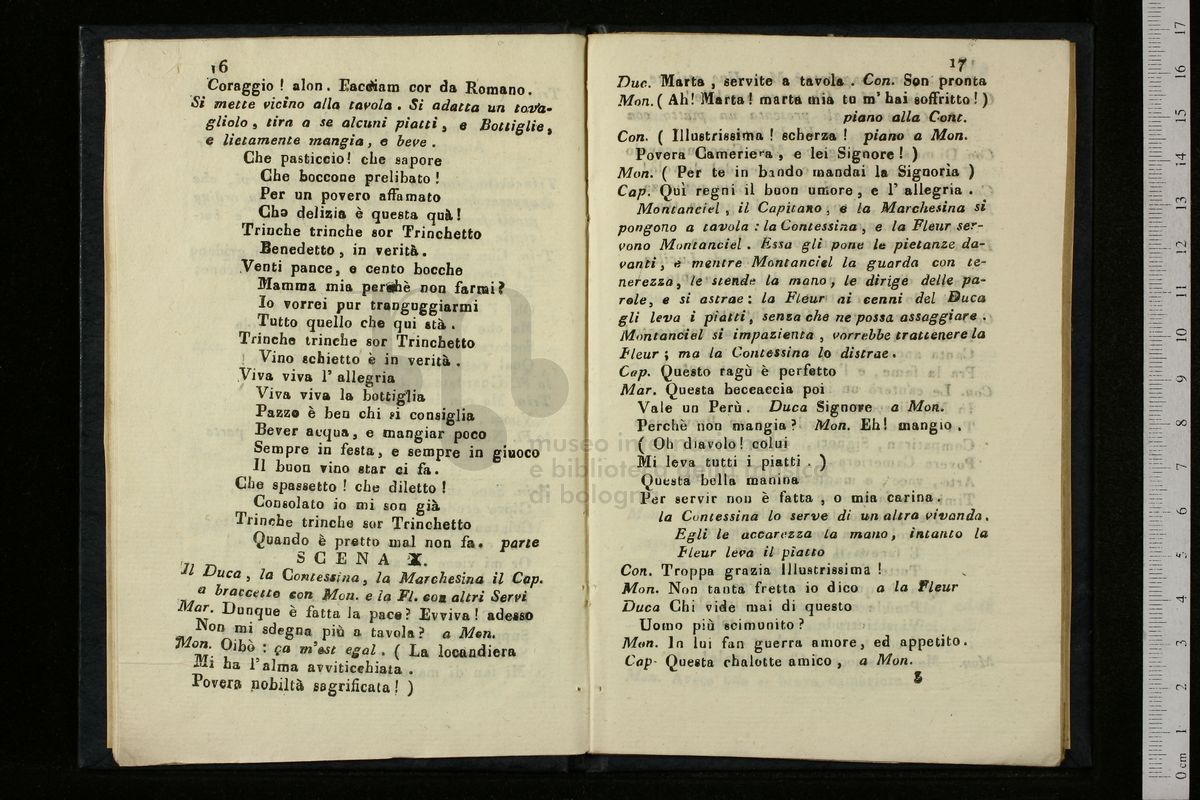 16
Coraggio ! alon. Facciam cor da Romano.
Si mette vicino alla tavola . Si adatta un tova-
gliolo , tira a se alcuni piatti , e Bottiglie,
e lietamente mangia, e beve .
Che pasticcio! che sapore
Che boccone prelibato !
Per un povero affamato
Che delizia è questa quà!
Trinche trinche sor Trinchetto
Benedetto , in verità.
Venti pance, e cento bocche
Mamma mia perchè non farmi?
Io vorrei pur tranguggiarmi
Tutto quello che qui stà .
Trinche trinche sor Trinchetto
Vino schietto è in verità .
Viva viva l' allegria
Viva viva la bottiglia
Pazzo è ben chi si consiglia
Bever acqua, e mangiar poco
Sempre in festa, e sempre in giuoco
Il buon vino star ci fa.
Che spassetto ! che diletto !
Consolato io mi son già
Trinche trinche sor Trinchetto
Quando è pretto mal non fa. parte
SCENA X.
Il Duca , la Contessina, la Marchesina il Cap.
a braccetto con Mon. e la Fl. con altri Servi
Mar. Dunque è fatta la pace? Evviva! adesso
Non mi sdegna più a tavola? a Mon.
Mon. Oibò : ça m'est egal . ( La locandiera
Mi ha l'alma avviticchiata .
Povera nobiltà sagrificata! )
17
Duc. Marta , servite a tavola . Con. Son pronta
Mon. ( Ah! Marta! marta mia tu m' hai soffritto ! )
piano alla Cont.
Con. ( Illustrissima ! scherza ! piano a Mon.
Povera Cameriera , e lei Signore ! )
Mon. ( Per te in bando mandai la Signoria )
Cap. Quì regni il buon umore, e l' allegria .
Montanciel , il Capitano, e la Marchesina si
pongono a tavola : la Contessina , e la Fleur ser-
vono Montanciel . Essa gli pone le pietanze da-
vanti, e mentre Montanciel la guarda con te-
nerezza, le stende la mano, le dirige delle pa-
role, e si astrae: la Fleur ai cenni del Duca
gli leva i piatti, senza che ne possa assaggiare .
Montanciel si impazienta , vorrebbe trattenere la
Fleur ; ma la Contessina lo distrae.
Cap. Questo ragù è perfetto
Mar. Questa beceaccia poi
Vale un Perù. Duca Signore a Mon.
Perchè non mangia? Mon. Eh! mangio .
( Oh diavolo! colui
Mi leva tutti i piatti . )
Questa bella manina
Per servir non è fatta , o mia carina.
la Contessina lo serve di un altra vivanda.
Egli le accarezza la mano, intanto la
Fleur leva il piatto
Con. Troppa grazia Illustrissima !
Mon. Non tanta fretta io dico a la Fleur
Duca Chi vide mai di questo
Uomo più scimunito ?
Mon. In lui fan guerra amore, ed appetito.
Cap- Questa chalotte amico , a Mon.
museo
e biblioteca della musica
di bologna
0 cm 1 2 3 4 5 6 7 8 9 10 11 12 13 14 15 16 17